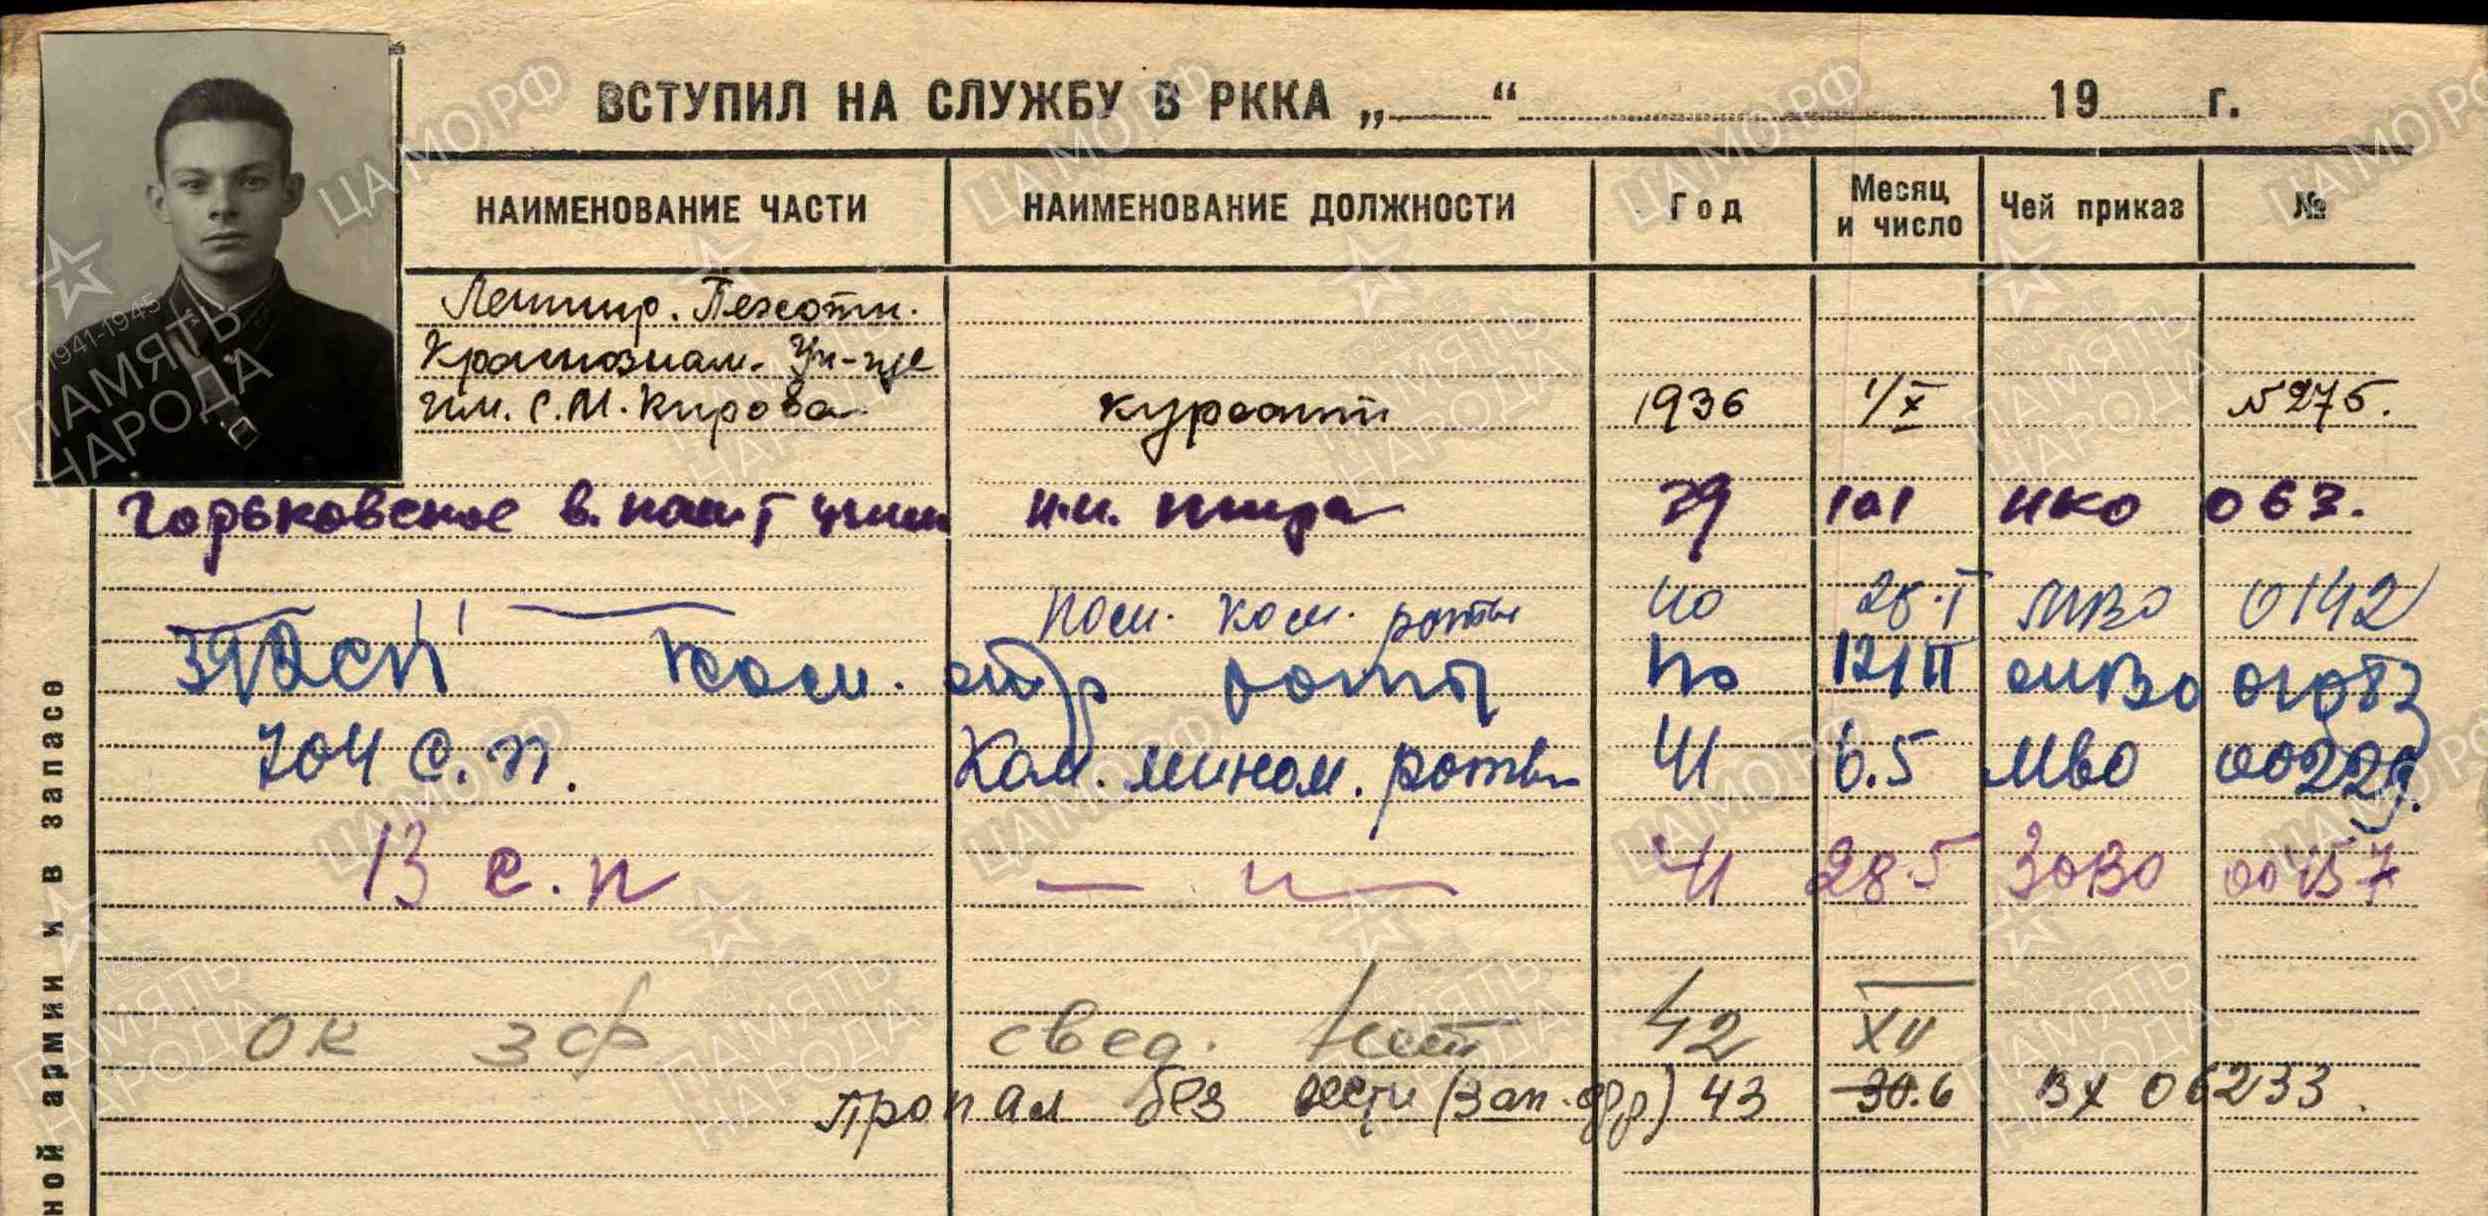 ВСТУПИЛ НА СЛУЖБУ В РККА „ “ 19 г.
НАИМЕНОВАНИЕ ЧАСТИ НАИМЕНОВАНИЕ ДОЛЖНОСТИ Год Месяц и число Чей приказ №
Ленингр. Пехотн.
Краснознам. Уч-ще
им. С.М. Кирова курсант 1936 1/X №275.
Горьковское в. 39 НКО 063.
пом. ком. роты 40 28.I МВО 0142
ком. роты 40 12/II МВО
704 с.п. Ком. мином. роты 41 6.5 МВО 00229.
13 с.п — " — 41 28.5 ЗОВО 00157
ОК ЗФ свед. нет 42 XII
пропал без вести (Зап. фр) 43 30.6 вх 06233.
ной армии и в запасе
ЦАМО.РФ
1941-1945
ПАМЯТЬ
НАРОДА